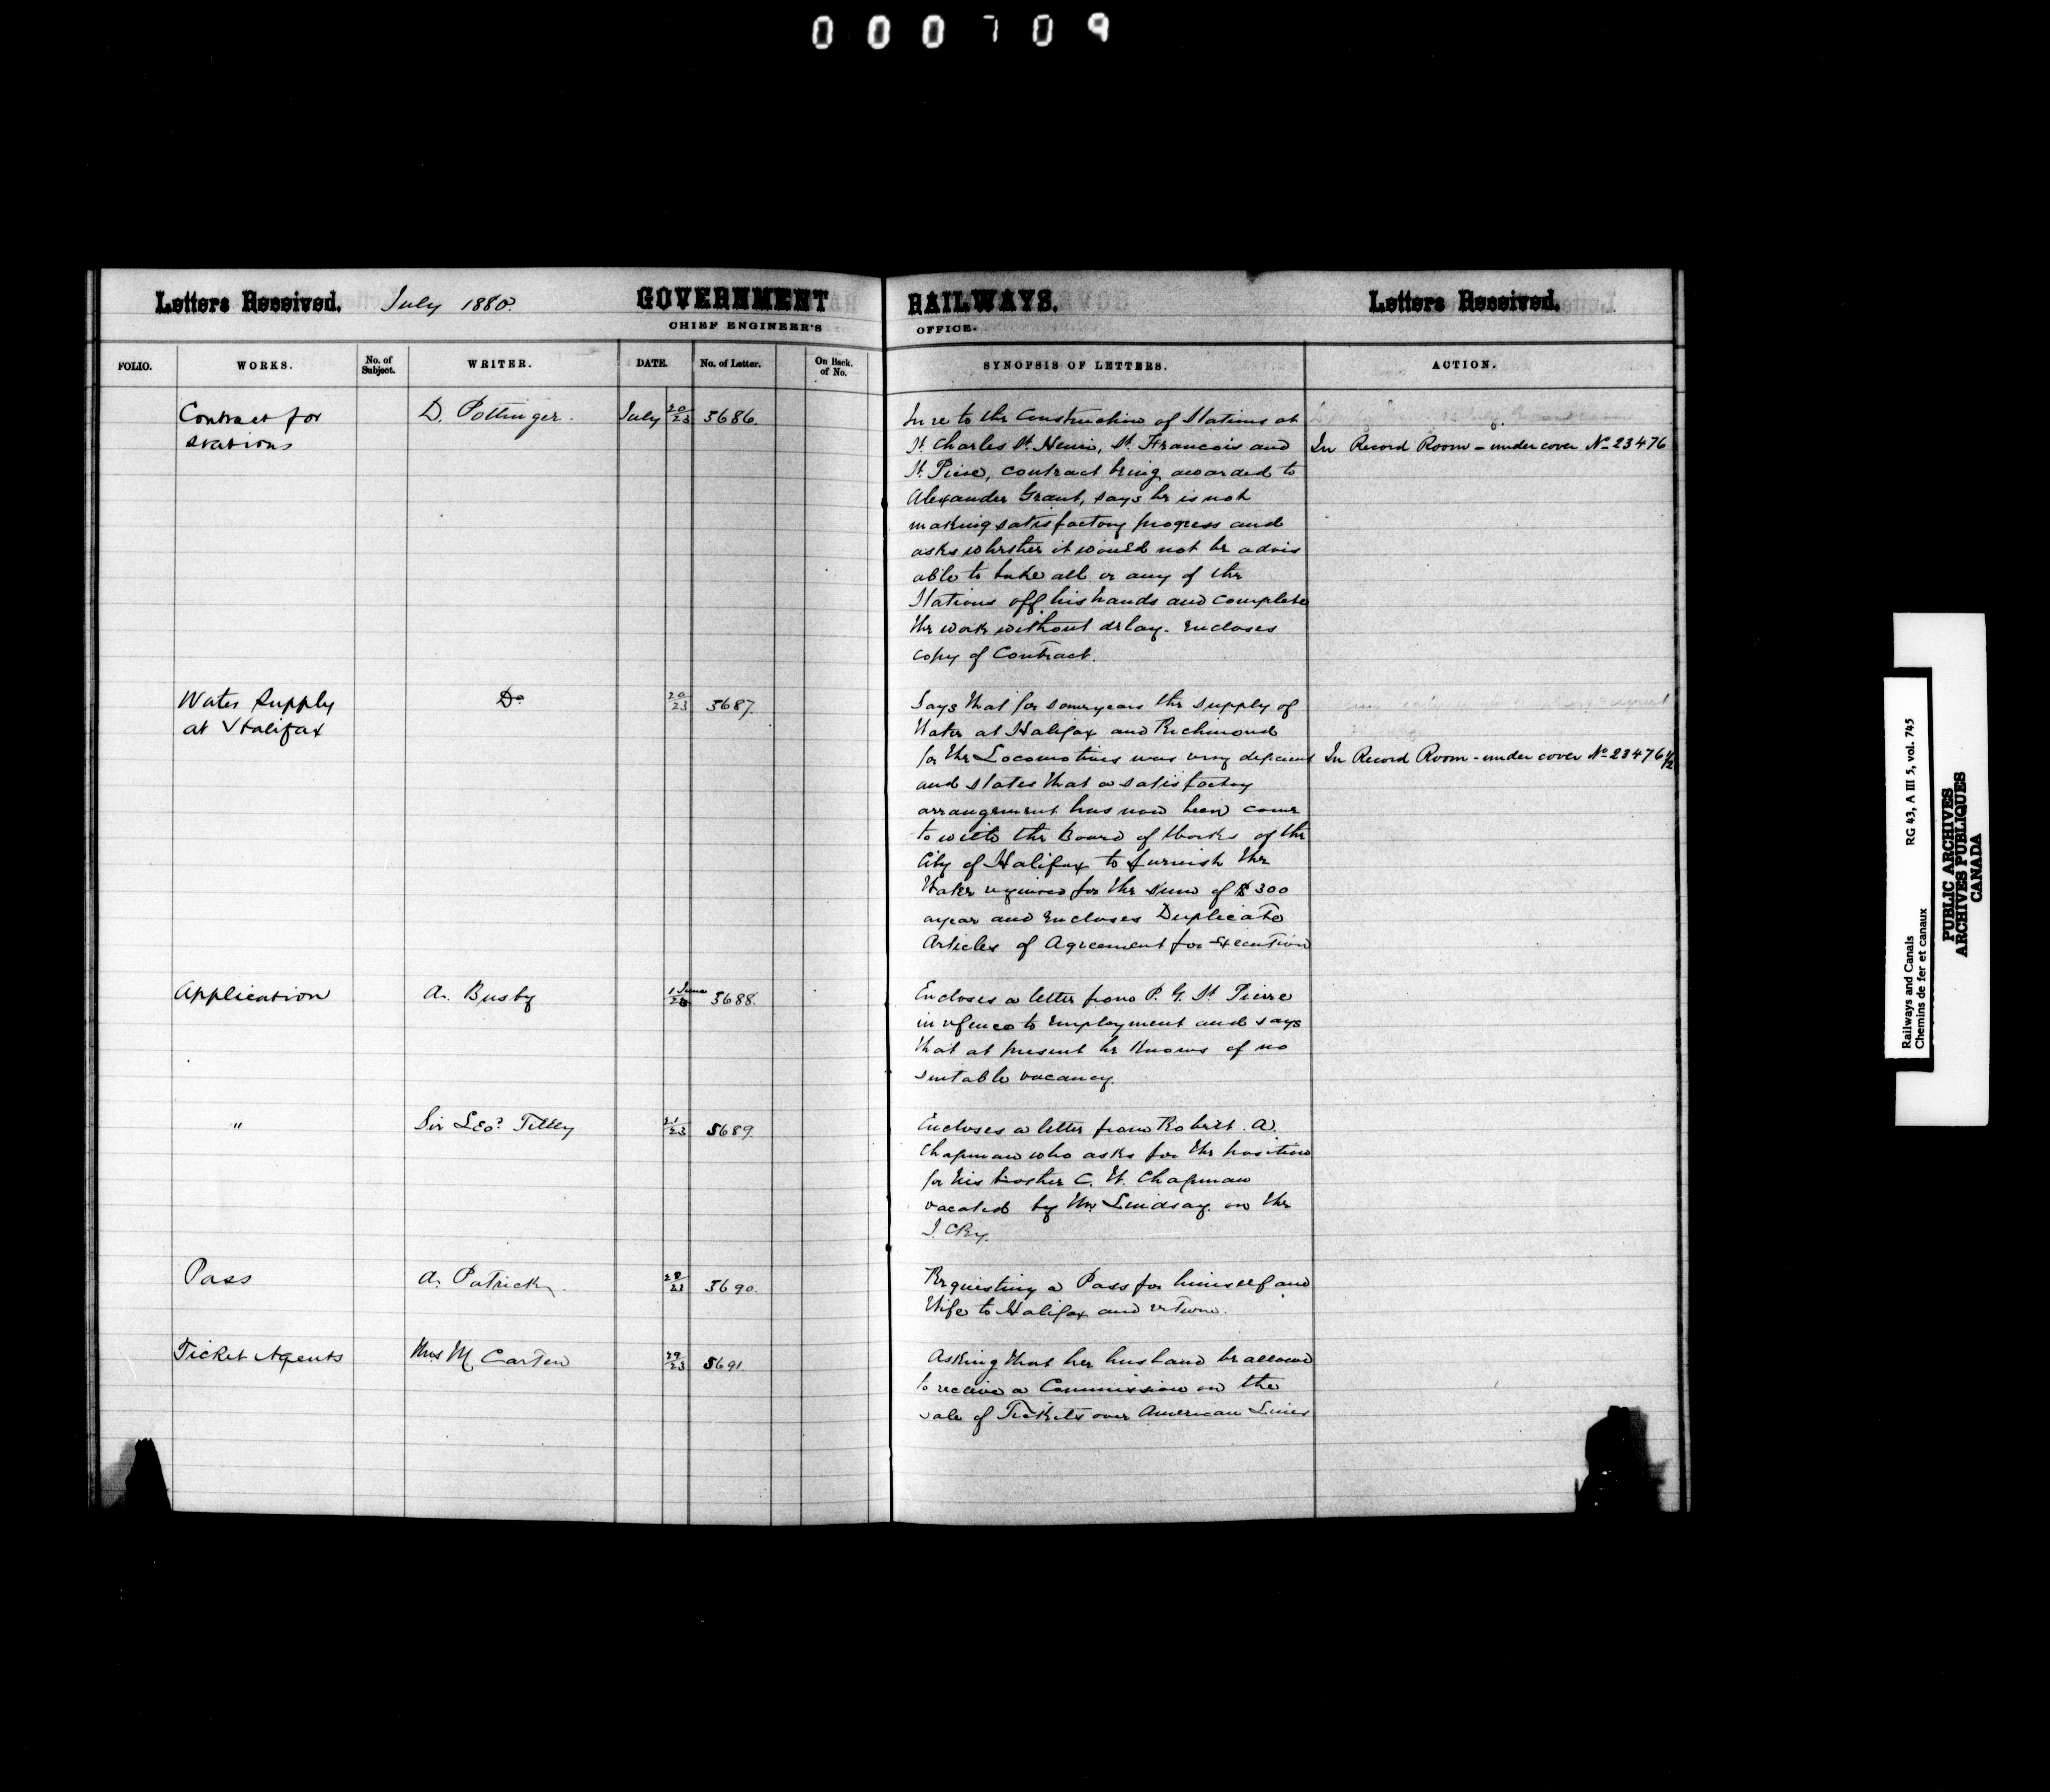 000709
Letters Received. July 1880. GOVERNMENT RAILWAYS. Letters Received.
CHIEF ENGINEER'S OFFICE.
FOLIO. WORKS. No. of Subject. WRITER. DATE. No. of Letter. On Back. of No. SYNOPSIS OF LETTERS. ACTION.
Contract for D. Pottinger. July 20/23 5686. In re to the Construction of Stations at
Stations St Charles St Henri, St Francois and In Record Room - under cover No 23476
St Pierre, contract being awarded to
Alexander Grant, says he is not
making satisfactory progress and
asks whether it would not be advis
able to take all or any of the
Stations off his hands and complete
the work without delay. Encloses
copy of Contract.
Water Supply Do 20/23 5687. Says that for some years the supply of
at Halifax Water at Halifax and Richmond
for the Locomotives was very deficient In Record Room - under cover No 23476 1/2
and states that a satisfactory
arrangement has now been come
to with the Board of Works of the
City of Halifax to furnish the
Water required for the sum of $300
a year and encloses Duplicate
Articles of Agreement for Execution
Application A. Busby 1 June/23 5688. Encloses a letter from P. G. St Pierre
in refence to Employment and says
that at present he knows of no
suitable vacancy.
" Sir Leo. Tilley 21/23 5689. Encloses a letter from Robert A.
Chapman who asks for the position
for his brother C. W. Chapman
vacated by Mr Lindsay on the
I. C Ry.
Pass A. Patrick 23 5690. Requesting a Pass for himself and
Wife to Halifax and return.
Ticket Agents Mrs M Carten 23 5691. Asking that her husband be allowed
to receive a Commission on the
sale of Tickets over American Lines
Railways and Canals RG 43, A III 5, vol. 745
Chemins de fer et canaux
PUBLIC ARCHIVES
ARCHIVES PUBLIQUES
CANADA